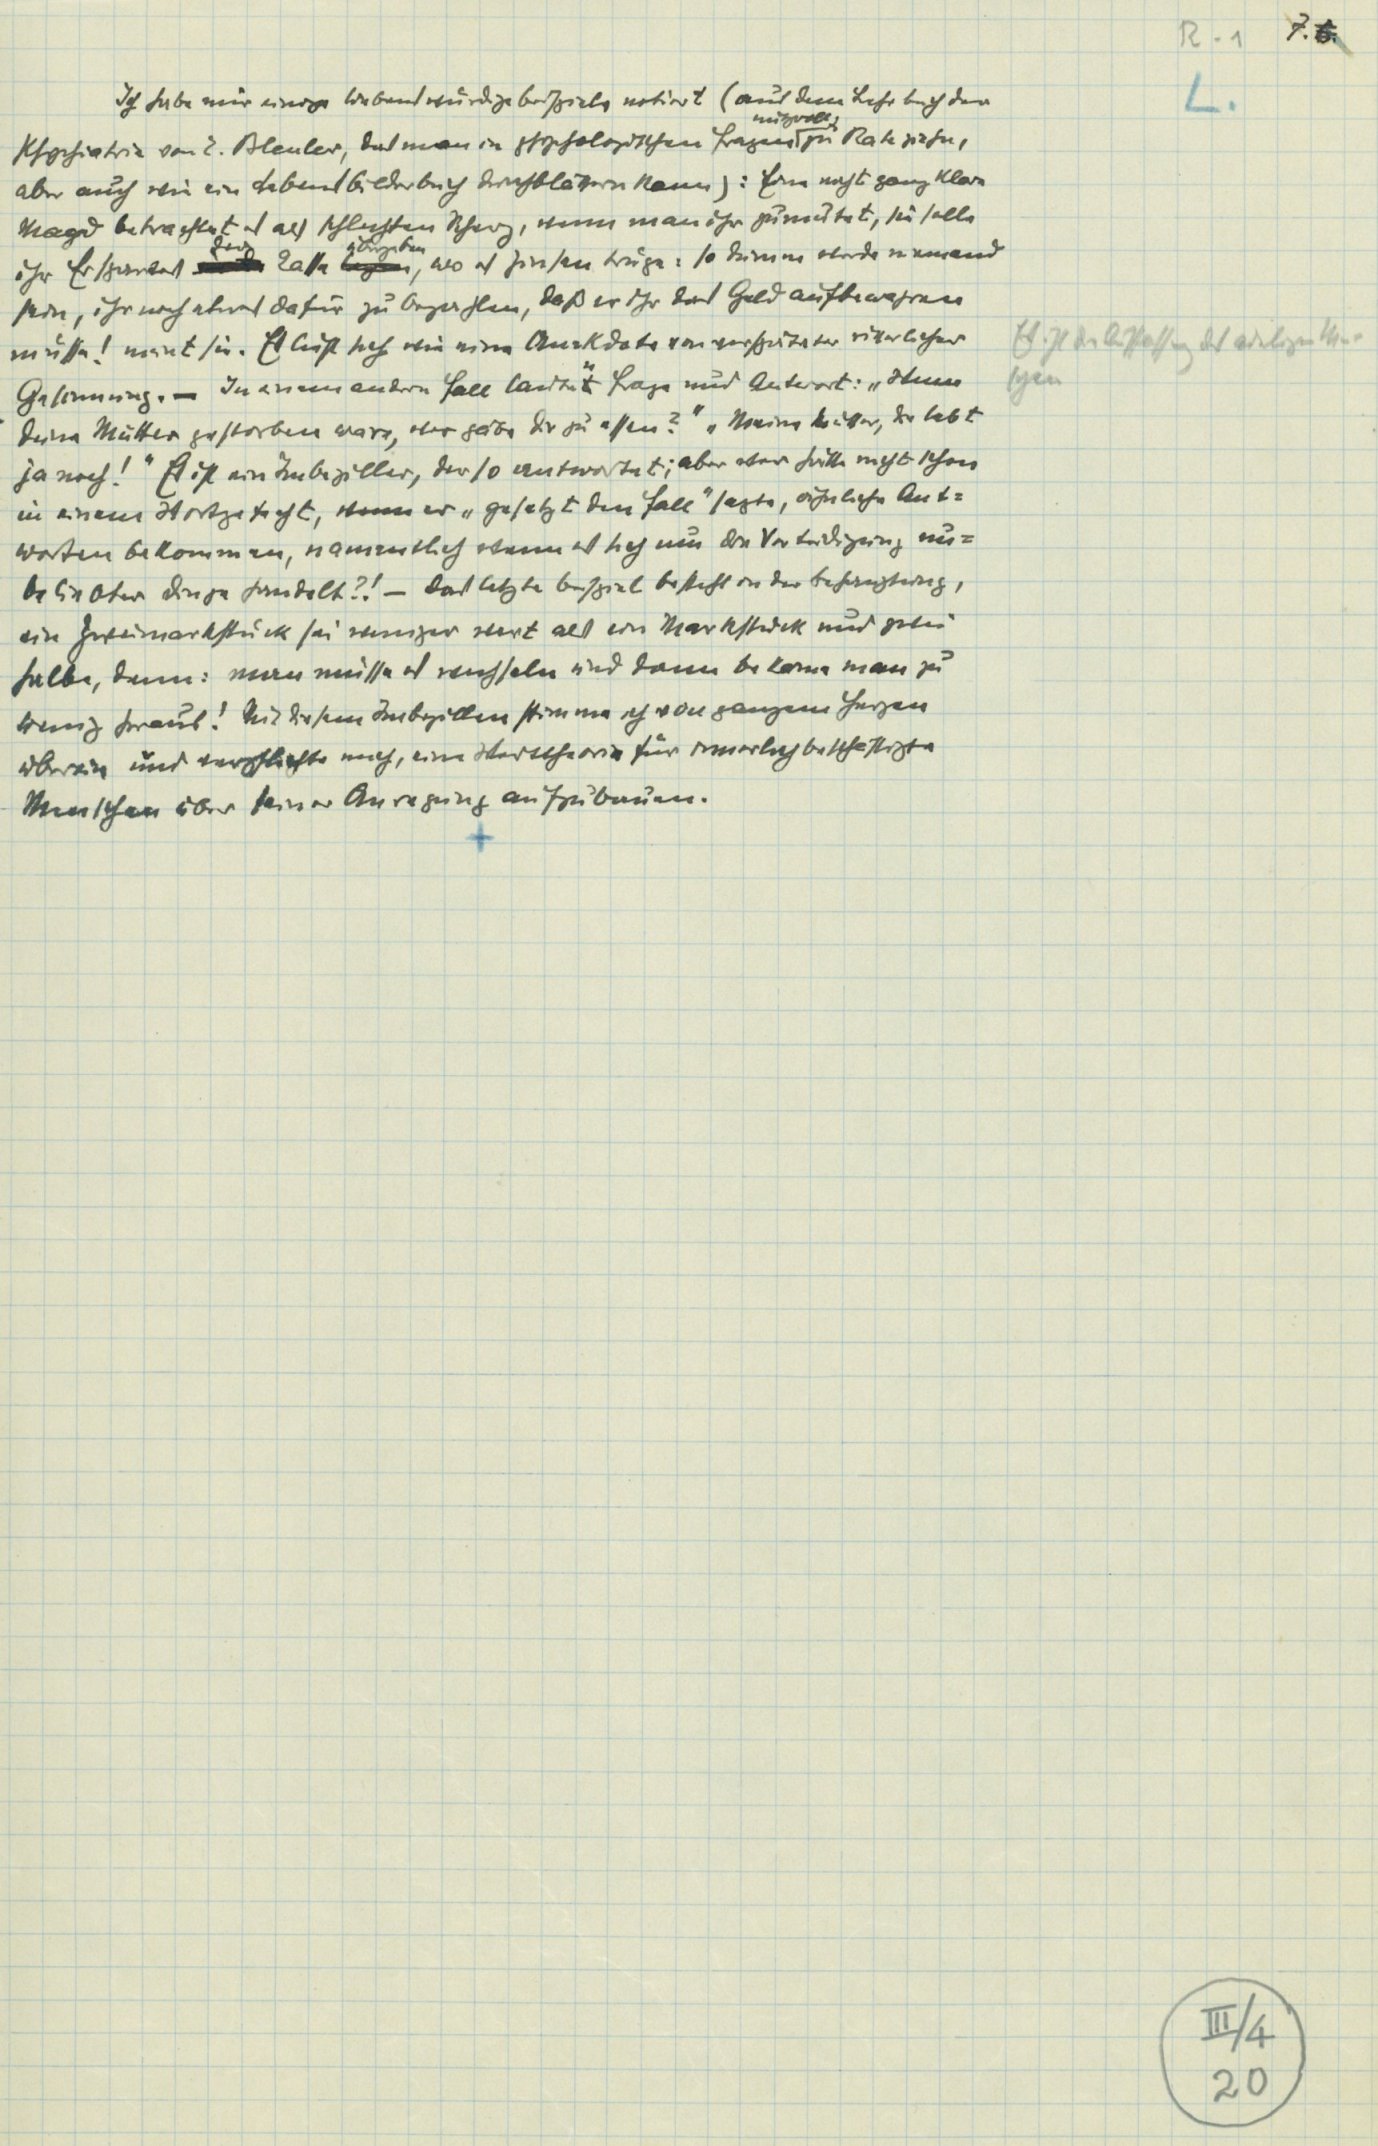 R-1 7. 6.
L.
Ich habe mir einige liebenswürdige Beispiele notiert (aus dem Lehrbuch der
nutzvoll
Psychiatrie von E. Bleuler, das man in psychologischen Fragen zu Rate ziehn,
aber auch wie ein Lebensbilderbuch durchblättern kann): Eine nicht ganz klare
Magd betrachtet es als schlechten Scherz, wenn man ihr zumutet, sie solle
der übergeben
ihr Erspartes Kasse legen, wo es Zinsen trüge: so dumm werde niemand
sein, ihr noch etwas dafür zu bezahlen, daß er ihr das Geld aufbewahren
müsse! meint sie. Es liest sich wie eine Anekdote von verspäteter ritterlicher
Es ist die Auffassung des adeligen Men-
schen
Gesinnung. – In einem andern Fall lautet Frage und Antwort: „Wenn
deine Mutter gestorben wäre, wer gäbe dir zu essen?" „Meine Mutter, die lebt
ja noch!" Es ist ein Imbeziller, der so antwortet; aber wer hätte nicht schon
in einem Wortgefecht, wenn er „gesetzt den Fall" sagte, ähnliche Ant=
worten bekommen, namentlich wenn es sich um die Verteidigung un=
beliebter Dinge handelt?! – Das letzte Beispiel besteht in der Behauptung,
ein Zweimarkstück sei weniger wert als ein Markstück und zwei
halbe, denn: man müsse es wechseln und dann bekäme man zu
wenig heraus! Mit diesem Imbezillen stimme ich von ganzem Herzen
überein und verpflichte mich, eine Werttheorie für innerlich beschäftigte
Menschen über seiner Anregung aufzubauen.
+
III/4
20